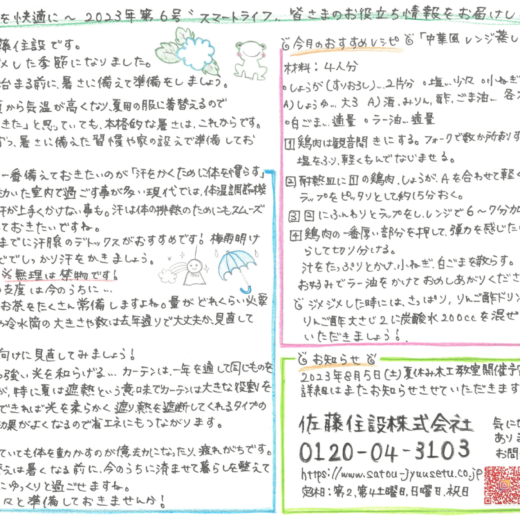 を快適に～ 2023年第6号〝スマートライフ〟皆さまのお役立ち情報をお届けし
藤住設です。
メした季節になりました。
始まる前に、暑さに備えて準備をしましょう。
から気温が高くなり、夏用の服に着替えるので
きた」と思っていても、本格的な暑さは、これからです。
暑さに備えた習慣や家の設えで準備してお
一番備えておきたいのが「汗をかくために体を慣らす」
いた室内で過ごす事が多い現代では、体温調節機
汗が上手くかけない事も。汗は体の排熱のためにもスムーズ
ておきたいですね。
までに汗腺のデトックスがおすすめです！梅雨明け
でしっかり汗をかきましょう。
※無理は禁物です！
支度は今のうちに…
お茶をたくさん常備しますよね。量がどれくらい必要
や冷水筒の大きさや数は去年通りで大丈夫か、見直して
向けに見直してみましょう！
強い光を和らげる… カーテンは、一年を通して同じものを
が、特に夏は遮熱という意味でカーテンは大きな役割を
できれば光を柔らかく遮り、熱を遮断してくれるタイプの
効果がよくなるので省エネにもつながります。
ていても体を動かすのが億劫になったり、疲れがちです。
えは暑くなる前に、今のうちに済ませて暮らしを整えて
にゆっくりと過ごせますね。
々と準備しておきませんか！
今月のおすすめレシピ 「中華風レンジ蒸し
材料：4人分
○しょうが(すりおろし)…2片分 ○塩…少々 ○小ねぎ
A)しょうゆ…大3 A)酒、みりん、酢、ごま油… 各
○白ごま…適量 ○ラー油…適量
1 鶏肉は観音開きにする。フォークで数か所刺す
塩をふり、軽くもんでなじませる。
2 耐熱皿に1の鶏肉、しょうが、Aを合わせて軽く
ラップをピタッとして約15分おく。
3 2にふんわりとラップをし、レンジで6～7分加
4 鶏肉の一番厚い部分を押して、弾力を感じたら
らして切り分ける。
汁をたっぷりとかけ、小ねぎ、白ごまを散らす。
お好みでラー油をかけてお召しあがりください
ジメジメした時には、さっぱり、りんご酢ドリン
りんご酢大さじ2に炭酸水200ccを混ぜ
いただきましょう！
お知らせ
2023年8月5日(土)夏休み木工教室開催予
詳細はまたお知らせさせていただきます
佐藤住設株式会社
0120-04-3103
https://www.satou-jyuusetu.co.jp
定休：第2、第4土曜日、日曜日、祝日
気に
あり
お問